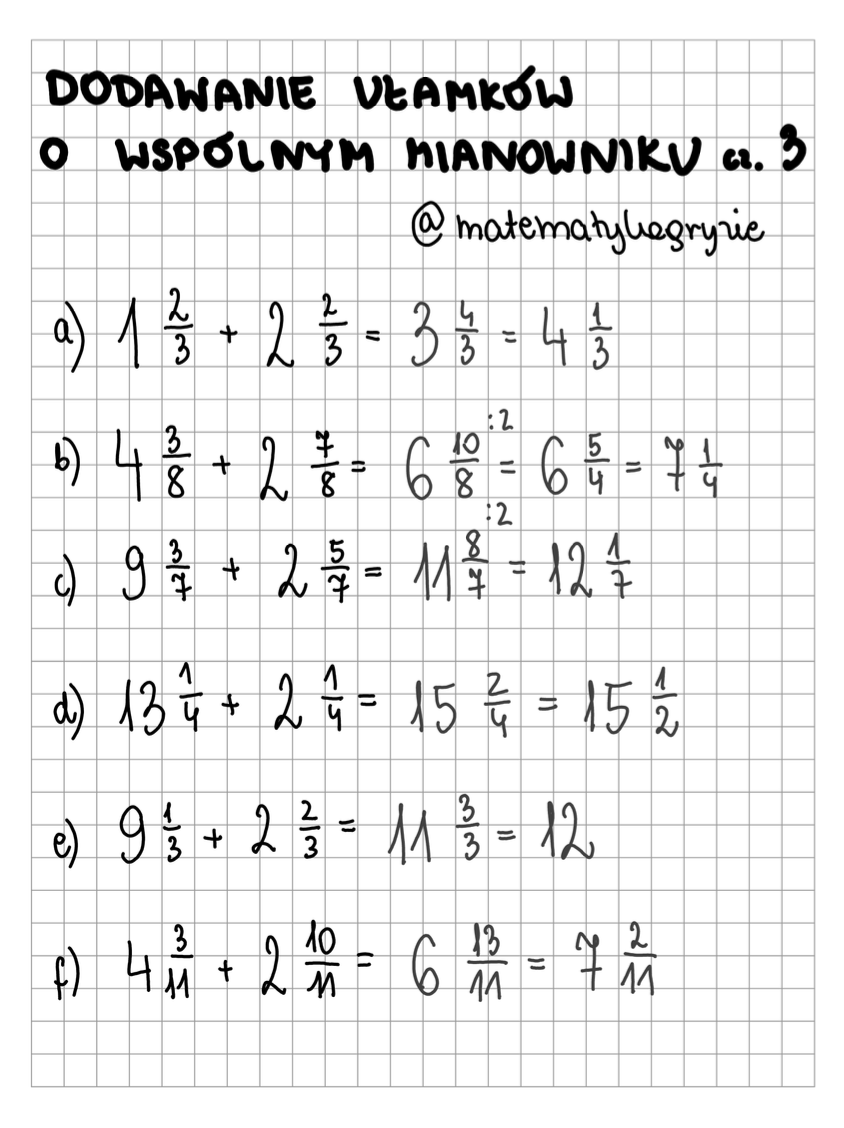 DODAWANIE UŁAMKÓW
O WSPÓLNYM MIANOWNIKU cz. 3
@matematykagryzie
a) 1 2/3 + 2 2/3 = 3 4/3 = 4 1/3
b) 4 3/8 + 2 7/8 = 6 10/8 :2 = 6 5/4 = 7 1/4
:2
c) 9 3/7 + 2 5/7 = 11 8/7 = 12 1/7
d) 13 1/4 + 2 1/4 = 15 2/4 = 15 1/2
e) 9 1/3 + 2 2/3 = 11 3/3 = 12
f) 4 3/11 + 2 10/11 = 6 13/11 = 7 2/11